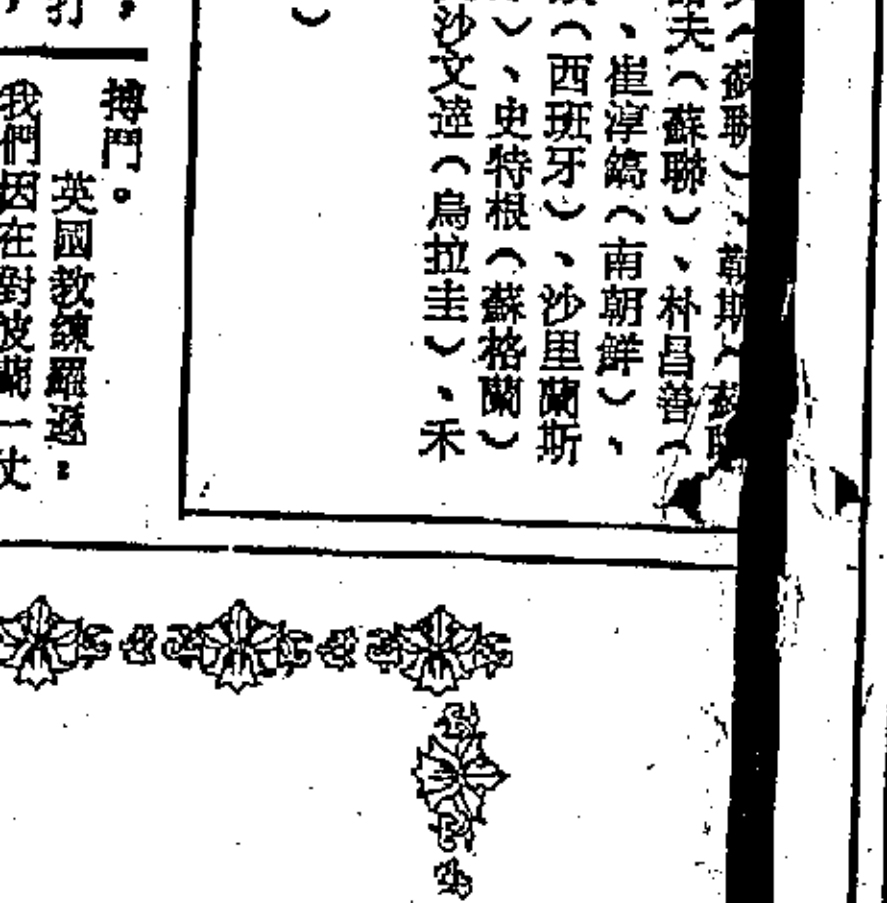 蘇聯）、勒斯（蘇聯
夫（蘇聯）、朴昌善（
、崔淳鎬（南朝鮮）、
（西班牙）、沙里蘭斯
）、史特根（蘇格蘭）
沙文達（烏拉圭）、禾
）
，
搏鬥。
打
英國教練羅遜：
，
我們因在對波蘭一